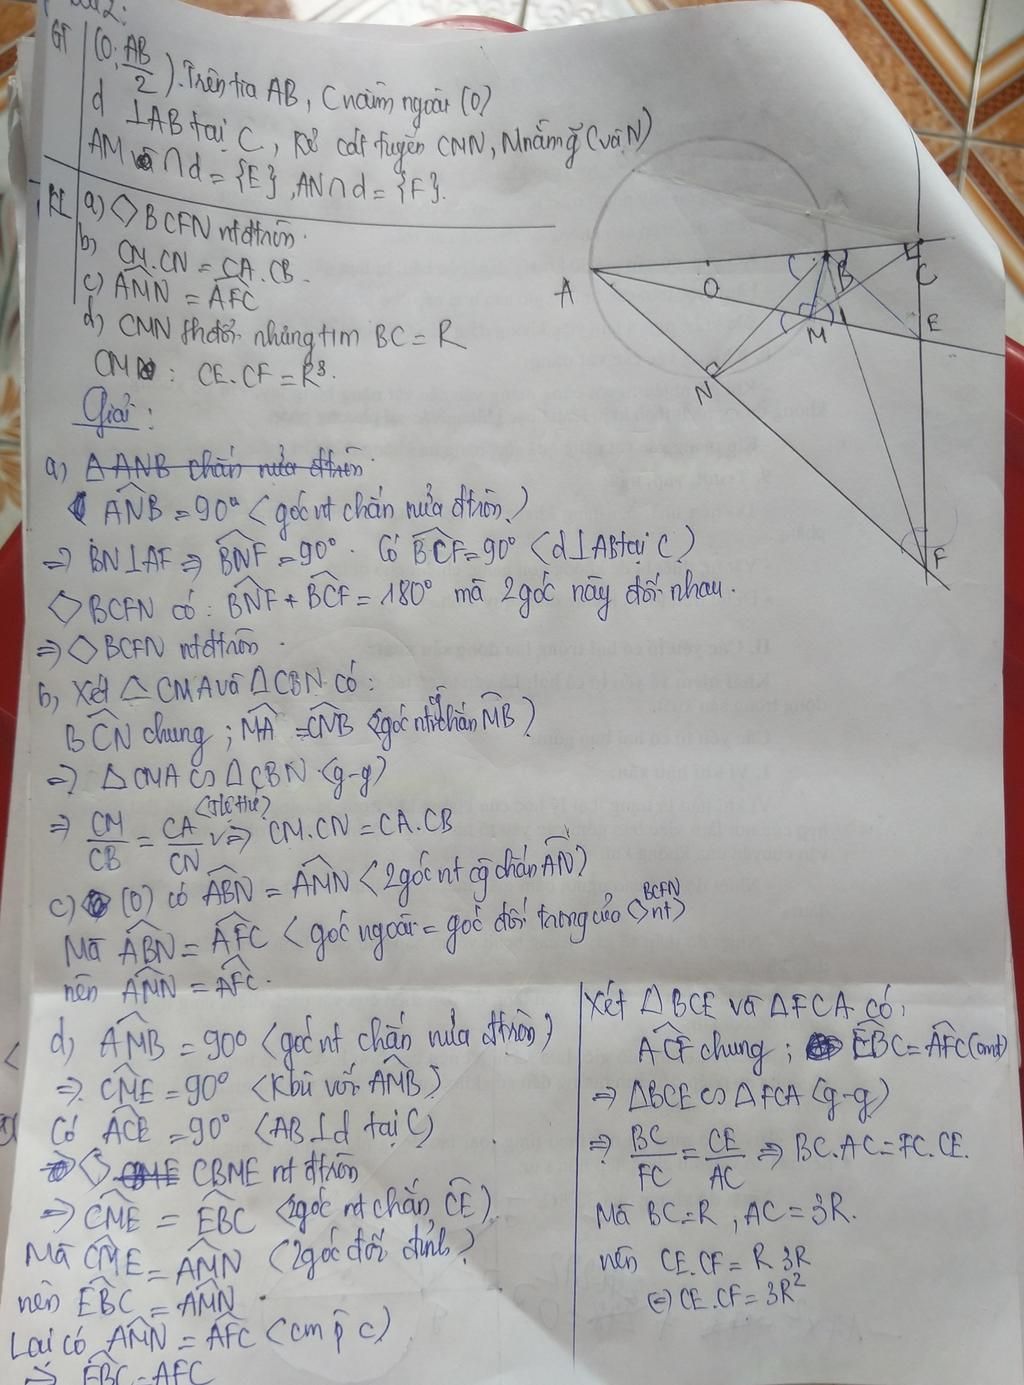 Bài 2:
GT (O; AB/2). Trên tia AB, C nằm ngoài (O)
d ⊥AB tại C, Kẻ cát tuyến CMN, M nằm g̃ (C và N)
AM ∩ d = {E}, AN ∩ d = {F}.
KL a) ◇ BCFN nt đtròn.
b) CM.CN = CA.CB.
c) AMN = AFC
d) CMN thđổi nhưng tìm BC = R
CM : CE.CF = R³.
Giải:
a) △ ANB chắn nửa đtròn.
ANB = 90° < góc nt chắn nửa đtròn.)
=> BN⊥AF => BNF = 90°. Có BCF = 90° < d⊥AB tại C)
◇ BCFN có: BNF + BCF = 180° mà 2 góc này đối nhau.
=> ◇ BCFN nt đtròn.
b, Xét △ CMA và △CBN có:
BCN chung; MA = CNB <2góc nt chắn MB)
=> △ CMA ∽ △CBN (g-g)
=> CM/CB = CA/CN => CM.CN = CA.CB
c) (O) có ABN = AMN < 2góc nt cg̃ chắn AN)
Mà ABN = AFC < góc ngoài = góc đối trong của ◇ BCFN nt)
nên AMN = AFC.
d) AMB = 90° < góc nt chắn nửa đtròn)
=> CME = 90° < Kbù với AMB)
Có ACE = 90° < AB⊥d tại C)
=> ◇ CBME nt đtròn
=> CME = EBC <2góc nt chắn CE)
Mà CME = AMN (2góc đối đỉnh)
nên EBC = AMN
Lại có AMN = AFC (cm p c)
=> EBC = AFC
Xét △BCE và △FCA có:
ACF chung; EBC = AFC (cmt)
=> △BCE ∽ △FCA (g-g)
=> BC/FC = CE/AC => BC.AC = FC.CE.
Mà BC = R, AC = 3R.
nên CE.CF = R 3R
<=> CE.CF = 3R²
A
O
B
C
M
E
N
F